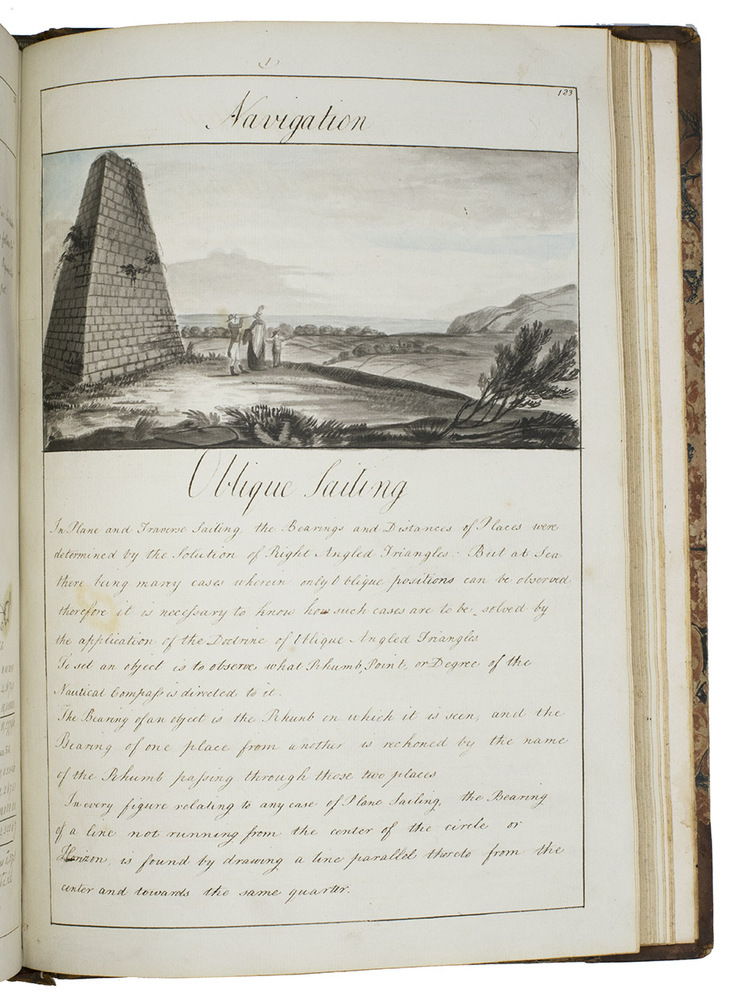 123
Navigation
Oblique Sailing
In Plane and Traverse Sailing, the Bearings and Distances of Places were
determined by the Solution of Right Angled Triangles: But at Sea
there being many cases wherein only Oblique positions can be observed
therefore it is necessary to know how such cases are to be solved by
the application of the Doctrine of Oblique Angled Triangles
To set an object is to observe what Rhumb, Point, or Degree of the
Nautical Compass is directed to it.
The Bearing of an object is the Rhumb on which it is seen, and the
Bearing of one place from another is reckoned by the name
of the Rhumb passing through those two places
In every figure relating to any case of Plane Sailing, the Bearing
of a line not running from the center of the circle or
Horizon, is found by drawing a line parallel thereto from the
center and towards the same quarter.